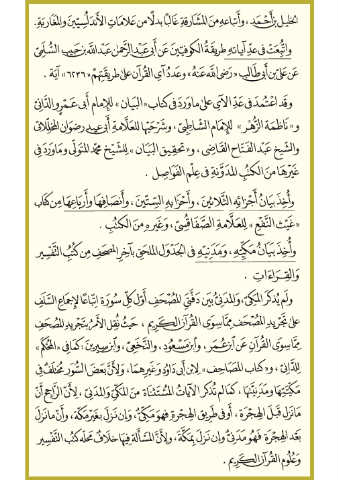 الخليل بن أحمد ، وأتباعه من المشارقة غالبا بدلا من علامات الأندلسيين والمغاربة .
واتبعت في عد آياته طريقة الكوفيين عن أبي عبد الرحمن عبد الله بن حبيب السلمي
عن علي بن أبي طالب « رضي الله عنه » وعدد آي القرآن على طريقتهم « ٦٢٣٦ » آية .
وقد اعتمد في عد الآي على ما ورد في كتاب « البيان » للإمام أبي عمرو الداني
و « ناظمة الزهر » للإمام الشاطبي ، وشرحيها للعلامة أبي عيد رضوان المخللاتي
والشيخ عبد الفتاح القاضي ، و « تحقيق البيان » للشيخ محمد المتولي وما ورد في
غيرها من الكتب المدونة في علم الفواصل .
وأخذ بيان أجزائه الثلاثين ، وأحزابه الستين ، وأنصافها وأرباعها من كتاب
« غيث النفع » للعلامة الصفاقسي ، وغيره من الكتب .
وأخذ بيان مكيه ، ومدنيه في الجدول الملحق بآخر المصحف من كتب التفسير
والقراءات .
ولم يذكر المكي ، والمدني بين دفتي المصحف أول كل سورة اتباعا لإجماع السلف
على تجريد المصحف مما سوى القرآن الكريم ، حيث نقل الأمر بتجريد المصحف
مما سوى القرآن عن ابن عمر ، وابن مسعود ، والنخعي ، وابن سيرين ، كما في « المحكم »
للداني ، و « كتاب المصاحف » لابن أبي داود وغيرهما ، ولأن بعض السور مختلف في
مكيتها ومدنيتها ، كما لم تذكر الآيات المستثناة من المكي والمدني ، لأن الراجح أن
ما نزل قبل الهجرة ، أو في طريق الهجرة فهو مكي ، وإن نزل بغير مكة ، وأن ما نزل
بعد الهجرة فهو مدني وإن نزل بمكة ، ولأن المسألة فيها خلاف محله كتب التفسير
وعلوم القرآن الكريم .